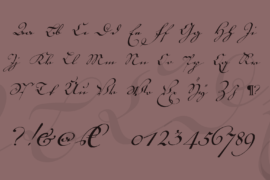 Aa Bb Cc Dd Ee Ff Gg Hh Ii
Jj Kk Ll Mm Nn Oo Pp Qq Rr
Ss Tt Uu Vv Ww Xx Yy Zz
?!&@ 0123456789